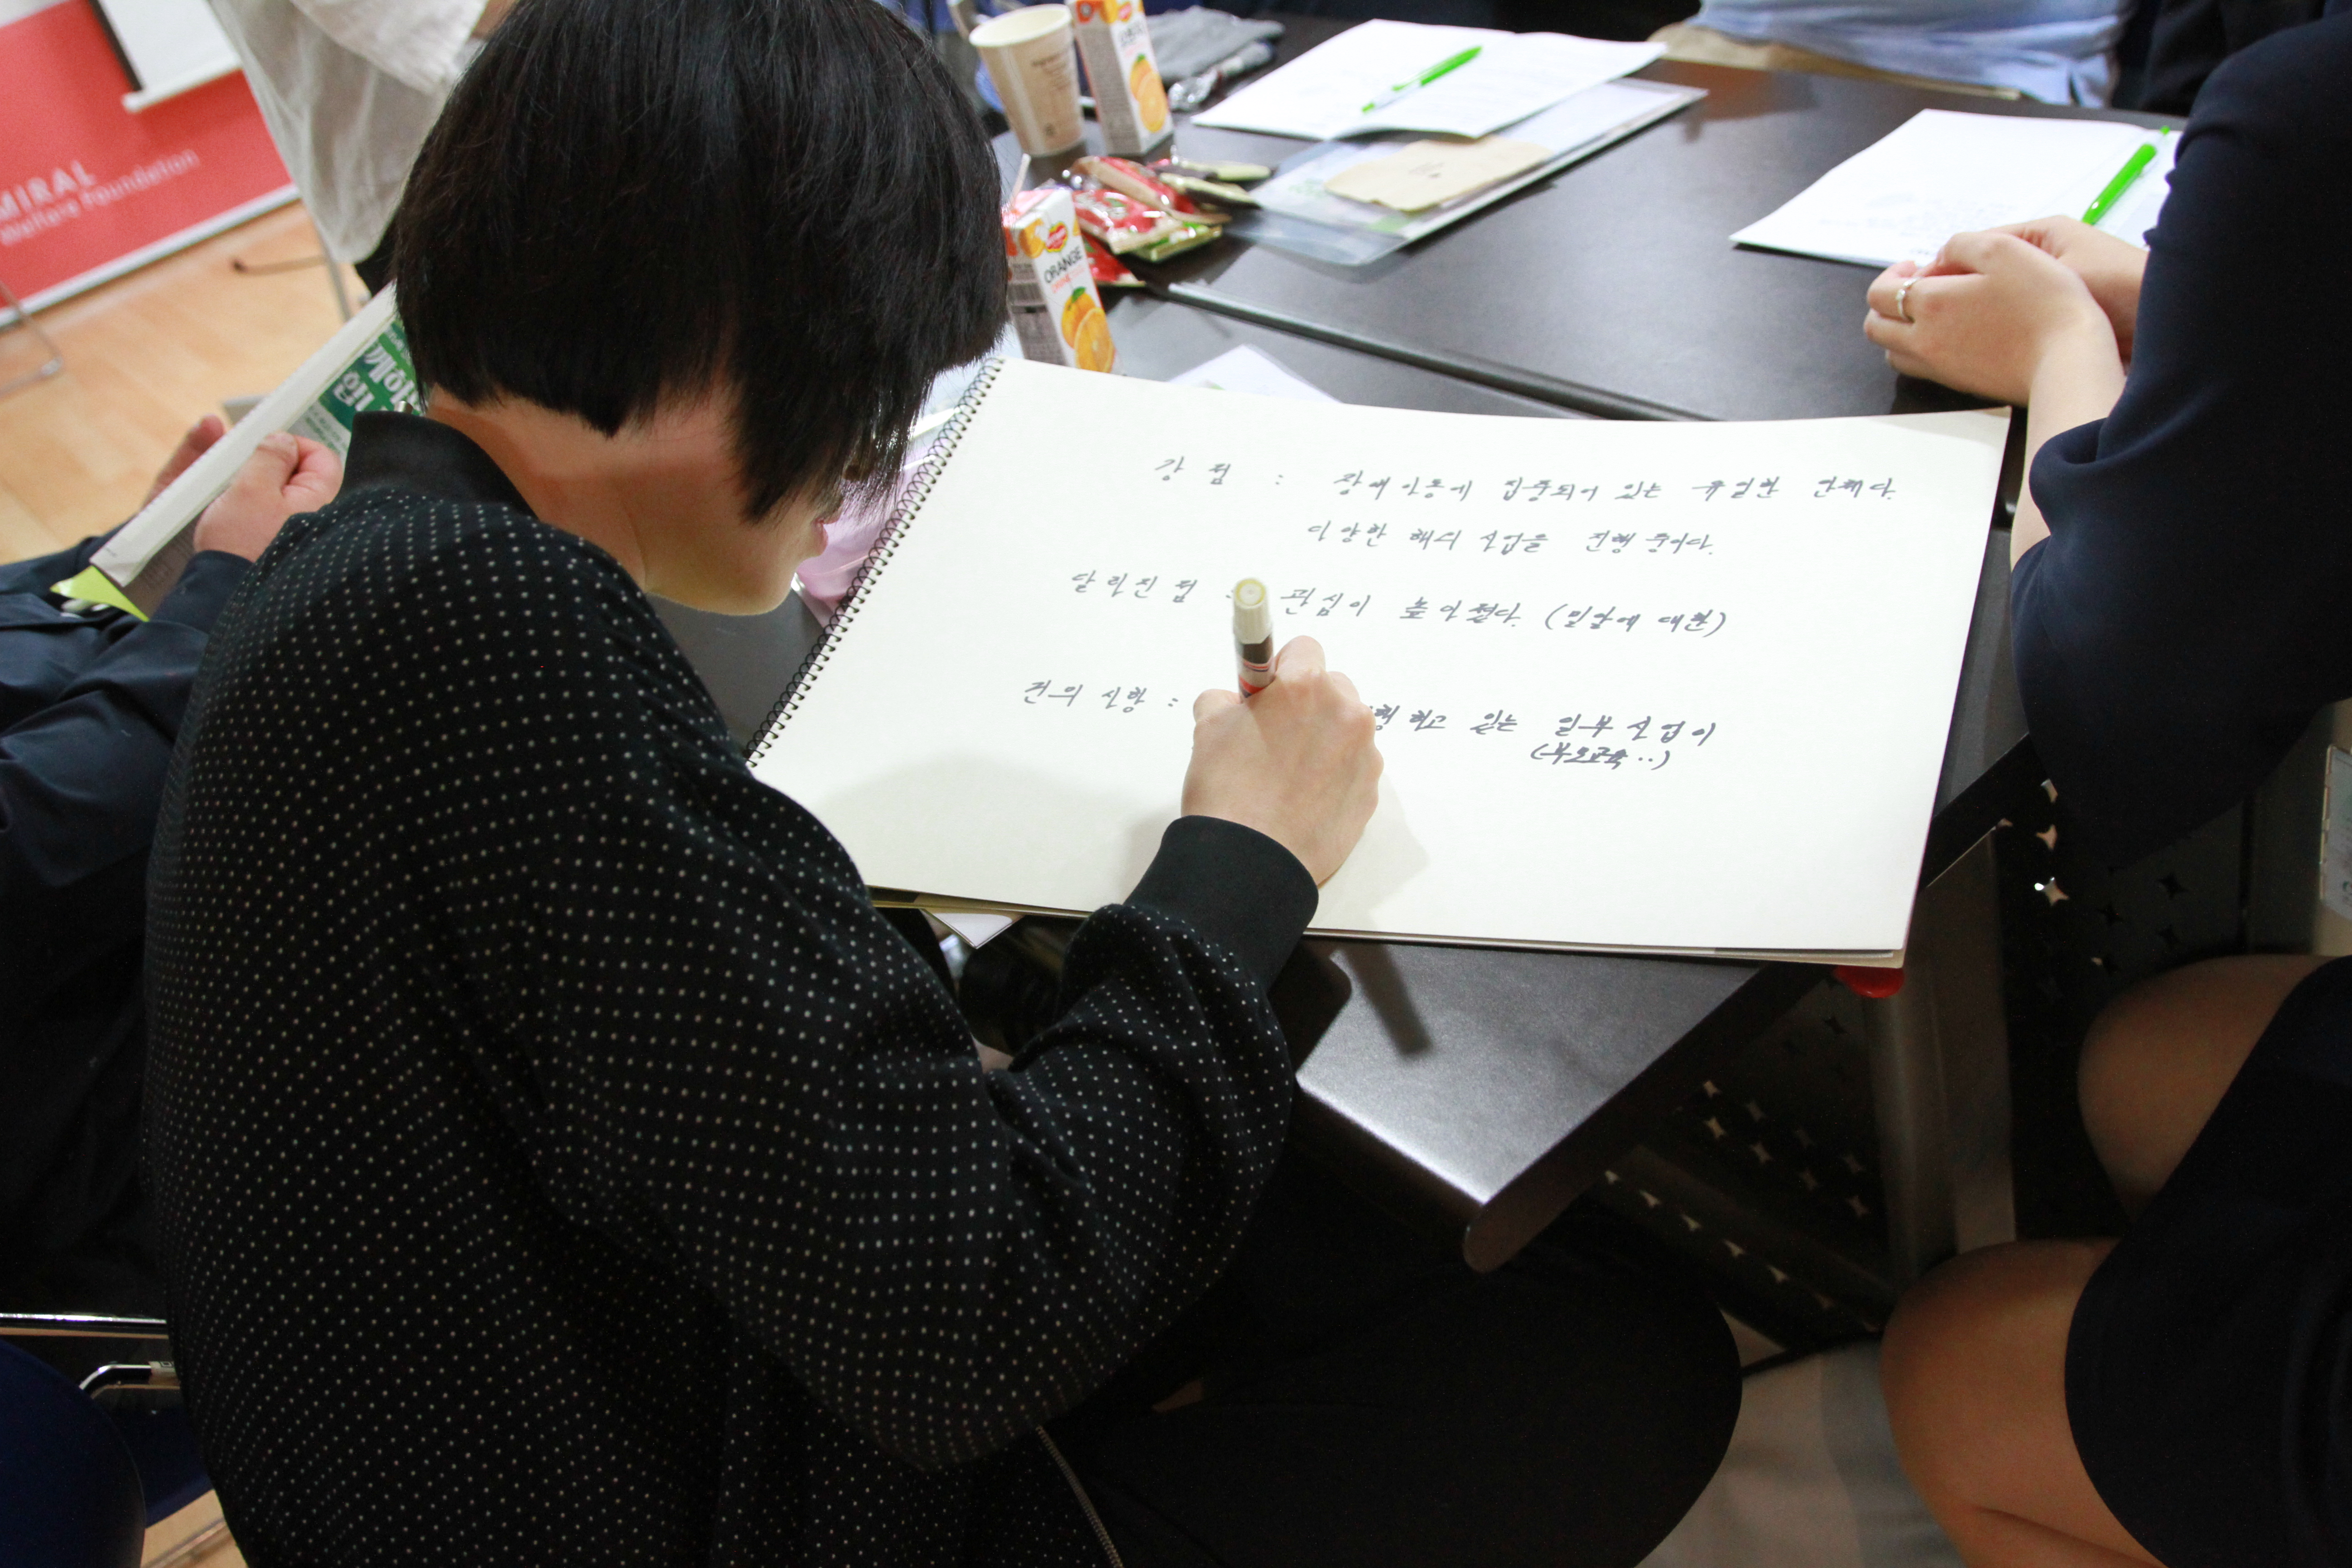 MIRAL
Welfare Foundation
ORANGE
강점 : 장애아동에 집중되어 있는 유일한 단체다.
다양한 해외 사업을 진행 중이다.
달라진 점 : 관심이 높아졌다. (밀알에 대한)
건의 사항 : 하고 있는 일부 사업이
(부모교육..)